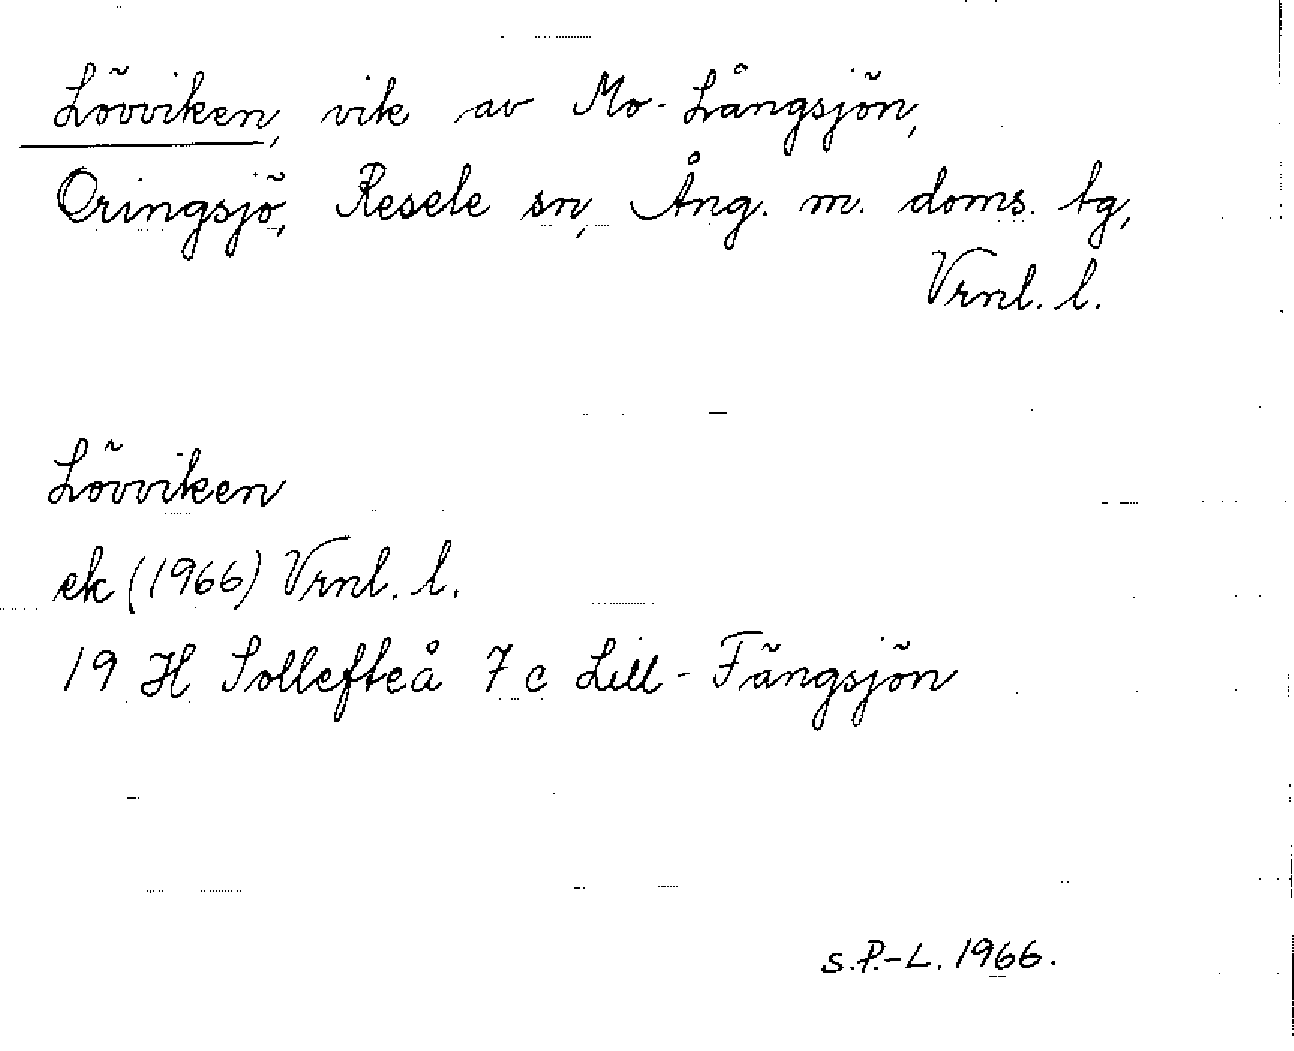 Lövviken, vik av Mo-Långsjön,
Oringsjö, Resele sn, Ång. m. doms. tg,
Vrnl. l.
Lövviken
ek (1966) Vrnl. l.
19 H Sollefteå 7 c Lill-Fängsjön
s.P.-L. 1966.